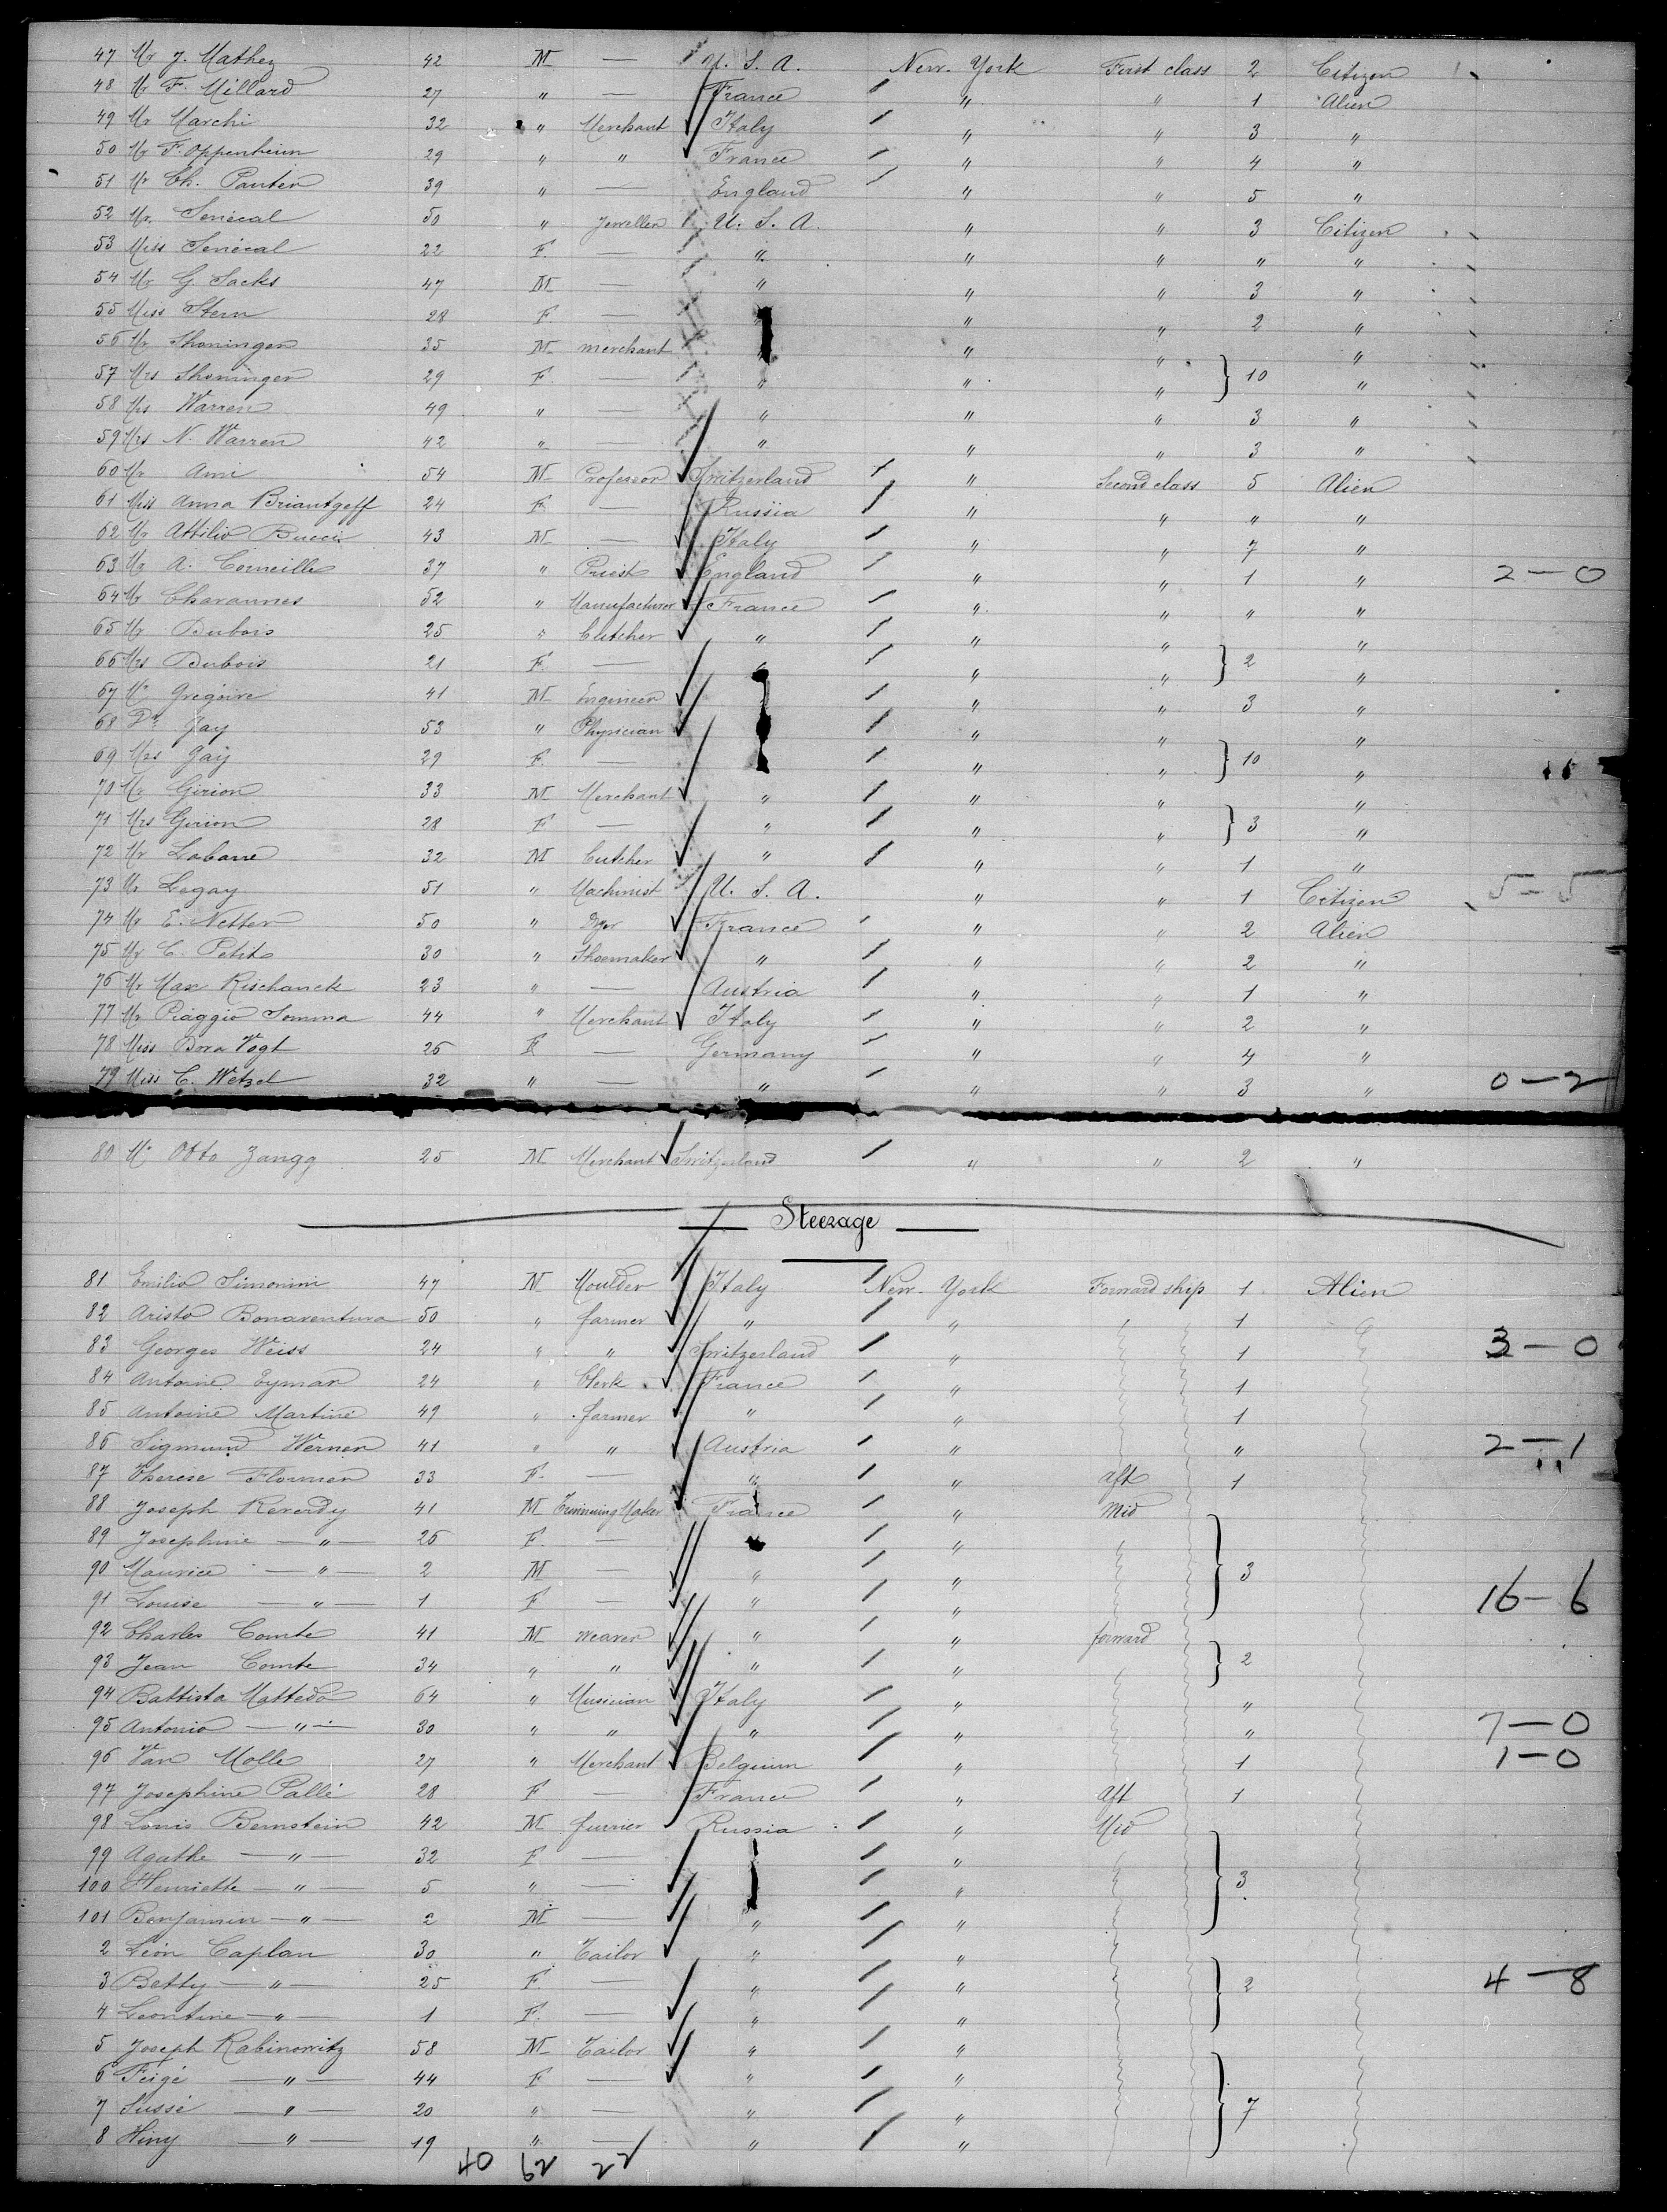 47 Mr J. Mathey 42 M — U. S. A. New-York First class 2 Citizen
48 Mr F. Millard 27 " — France " " 1 Alien
49 Mr Marchi 32 " Merchant Italy " " 3 "
50 Mr F. Oppenheim 29 " " France " " 4 "
51 Mr Ch. Panter 39 " — England " " 5 "
52 Mr. Senécal 50 " Jeweller U. S. A. " " 3 Citizen
53 Miss Senécal 22 F. — " " " " "
54 Mr G. Sacks 47 M — " " " 3 "
55 Miss Stern 28 F. — " " " 2 "
56 Mr Shoninger 35 M merchant " " " "
57 Mrs Shoninger 29 F — " " " } 10 "
58 Mrs Warren 49 " — " " " 3 "
59 Mrs N. Warren 42 " — " " " 3 "
60 Mr Ami 54 M Professor Switzerland " Second class 5 Alien
61 Miss Anna Briantgeff 24 F. — Russia " " " "
62 Mr Attilio Bucci 43 M — Italy " " 7 "
63 Mr A. Corneille 37 " Priest England " " 1 " 2 — 0
64 Mr Chavannes 52 " Manufacturer France " " " "
65 Mr Dubois 25 " Cutcher " " " "
66 Mrs Dubois 21 F. — " " " } 2 "
67 Mr Grégoire 41 M Engineer " " 3 "
68 Dr Jay 53 " Physician " " "
69 Mrs Jay 29 F — " " } 10 "
70 Mr Girion 33 M Merchant " " " "
71 Mrs Girion 28 F — " " " } 3 "
72 Mr Labarre 32 M Cutcher " " " 1 "
73 Mr Legay 51 " Machinist U. S. A. " " 1 Citizen 5 = 5
74 Mr E. Netter 50 " Dyer France " " 2 Alien
75 Mr C. Petit 30 " Shoemaker " " " 2 "
76 Mr Max Rischanek 23 " — Austria " " 1 "
77 Mr Piaggio Somma 44 " Merchant Italy " " 2 "
78 Miss Dora Vogt 26 F — Germany " " 4 "
79 Miss C. Wetzel 32 " — " " " 3 " 0 — 2
80 Mr Otto Zangg 25 M Merchant Switzerland " " 2 "
— Steerage —
81 Emilio Simonini 47 M Moulder Italy New-York Forward ship 1 Alien
82 Aristo Bonaventura 50 " farmer " " 1
83 Georges Weiss 24 " " Switzerland " 1 3 — 0
84 Antoine Eymar 24 " Clerk France " 1
85 Antoine Martiné 49 " farmer " " 1
86 Sigmund Werner 41 " " Austria " " 2 — 1
87 Therese Flormen 33 F. — " " aft 1
88 Joseph Reverdy 41 M Trimming Maker France " Mid
89 Josephine — " — 26 F. — " "
90 Maurice — " — 2 M — " " } 3
91 Louise — " — 1 F — " " 16 — 6
92 Charles Comte 41 M weaver " " forward
93 Jean Comte 34 " " " " } 2
94 Battista Mattedo 64 " Musician Italy " "
95 Antonio — " — 30 " " " " " 7 — 0
96 Van Molle 27 " Merchant Belgium " 1 1 — 0
97 Josephine Pallé 28 F — France " Aft 1
98 Louis Bernstein 42 M furrier Russia " Mid
99 Agathe — " — 32 F — "
100 Henriette — " — 5 " — " } 3
101 Benjamin — " — 2 M — " "
2 Léon Caplan 30 " Tailor " "
3 Betty — " — 25 F. — " " } 2 4 — 8
4 Leontine — " — 1 F. — " "
5 Joseph Rabinowitz 58 M Tailor " "
6 Feigé — " — 44 F — " "
7 Sussé — " — 20 " — " " } 7
8 Hiny — " — 19 " — " "
40 62 22